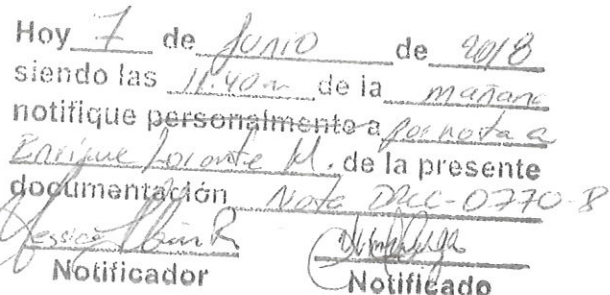 Hoy 7 de Junio de 2018
siendo las 11:40 am de la mañana
notifique personalmente a por nota a
Enrique Lorente M. de la presente
documentación Nota DRCC-0770-8
Jessica R
Notificador Notificado